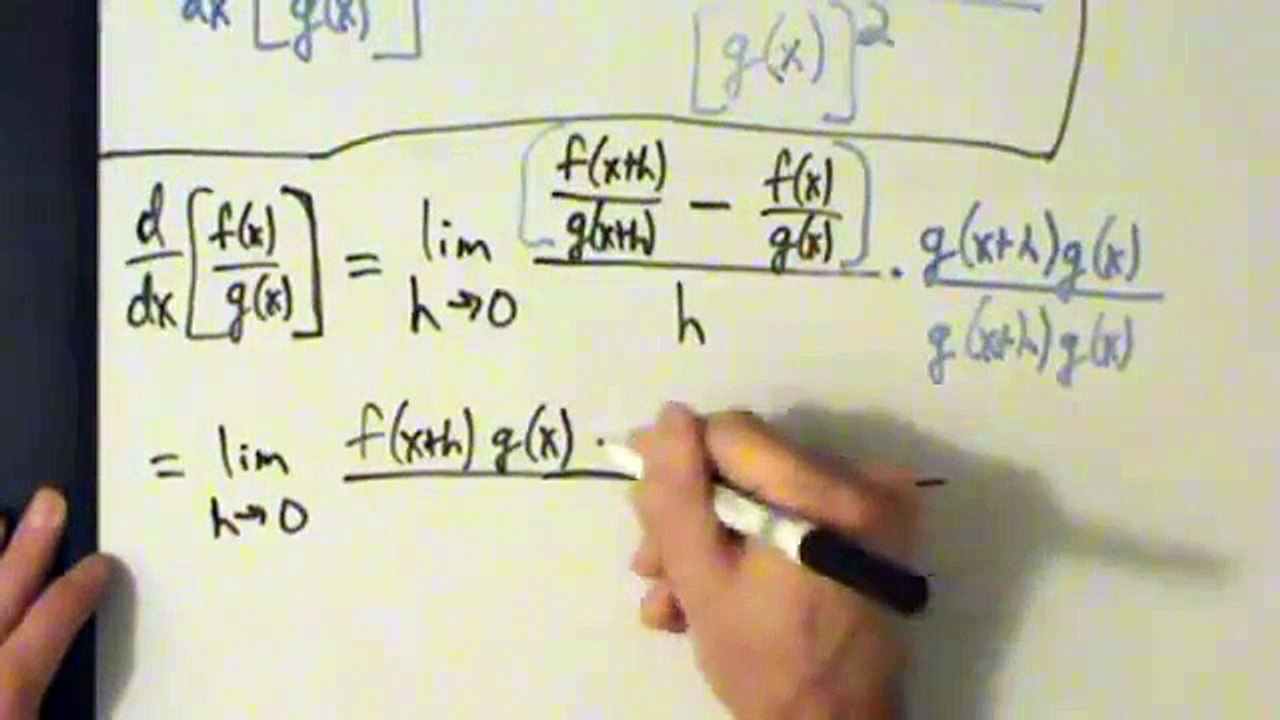 dx [ g(x) ] [g(x)]^2
d/dx [f(x)/g(x)] = lim h→0 [f(x+h)/g(x+h) − f(x)/g(x)]/h · g(x+h)g(x)/g(x+h)g(x)
= lim h→0 f(x+h) g(x)